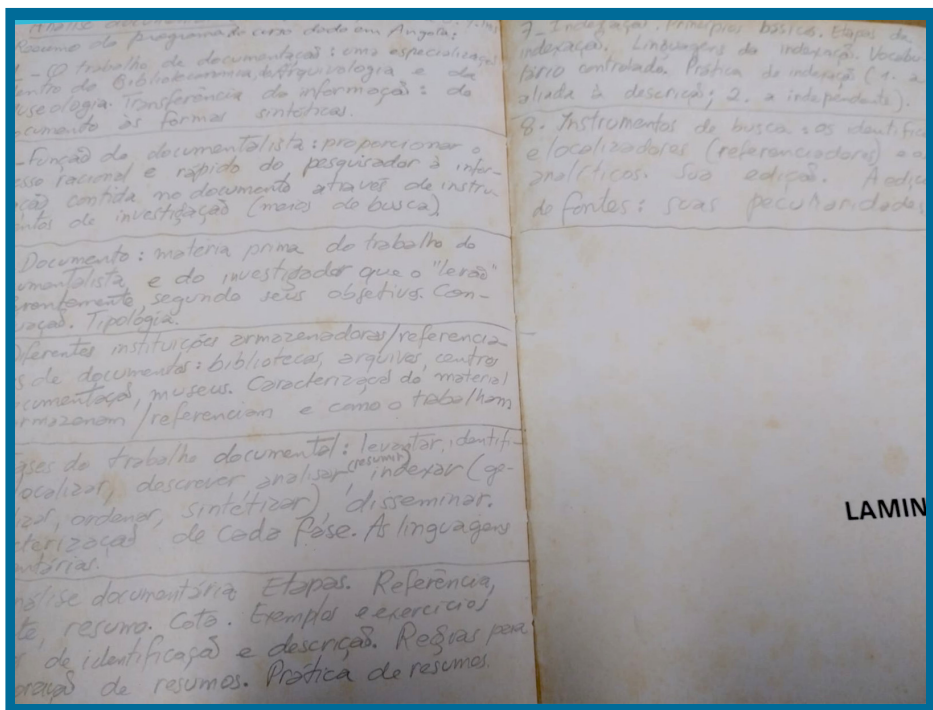 Análise documentá
Resumo do programa do curso dado em Angola:
1 - O trabalho de documentação: uma especialização
entro da Biblioteconomia, da Arquivologia e da
useologia. Transferência da informação: do
ocumento às formas sintéticas.
-Função do documentalista: proporcionar o
esso racional e rápido do pesquisador à infor-
ação contida no documento através de instru
entos de investigação (meios de busca)
Documento: matéria prima do trabalho do
umentalista e do investigador que o "lerão"
erentemente, segundo seus objetivos. Con-
uação. Tipologia.
iferentes instituições armazenadoras/referencia-
s de documentos: bibliotecas, arquivos, centros
ocumentação, museus. Caracterização do material
rmazenam/referenciam e como o trabalham
ases do trabalho documental: levantar, identifi-
ocalizar, descrever analisar (resumir), indexar (ge-
lizar, ordenar, sintetizar), disseminar.
cterização de cada fase. As linguagens
ntárias.
nálise documentária Etapas. Referência,
te, resumo. Cota. Exemplos e exercícios
de identificação e descrição. Regras para
oração de resumos. Prática de resumos.
7- Indexação. Princípios básicos. Etapas da
indexação. Linguagens da indexação. Vocabu-
lário controlado. Prática de indexação (1. a
aliada à descrição; 2. a independente).
8. Instrumentos de busca: os identifica
e localizadores (referenciadores) e os
analíticos. Sua edição. A ediç
de fontes: suas peculiaridades
LAMIN